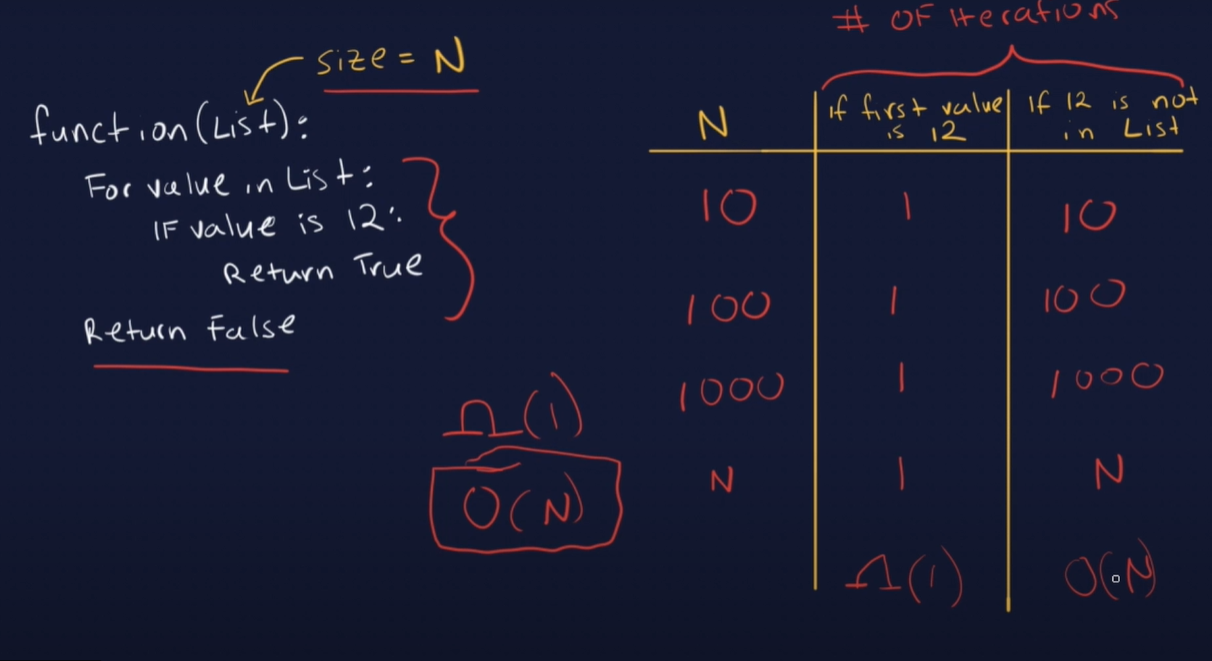 size = N
function(List):
For value in List:
IF value is 12:
Return True
Return False
Ω(1)
O(N)
# OF Iterations
N
if first value is 12
IF 12 is not in List
10 1 10
100 1 100
1000 1 1000
N 1 N
Ω(1) O(N)